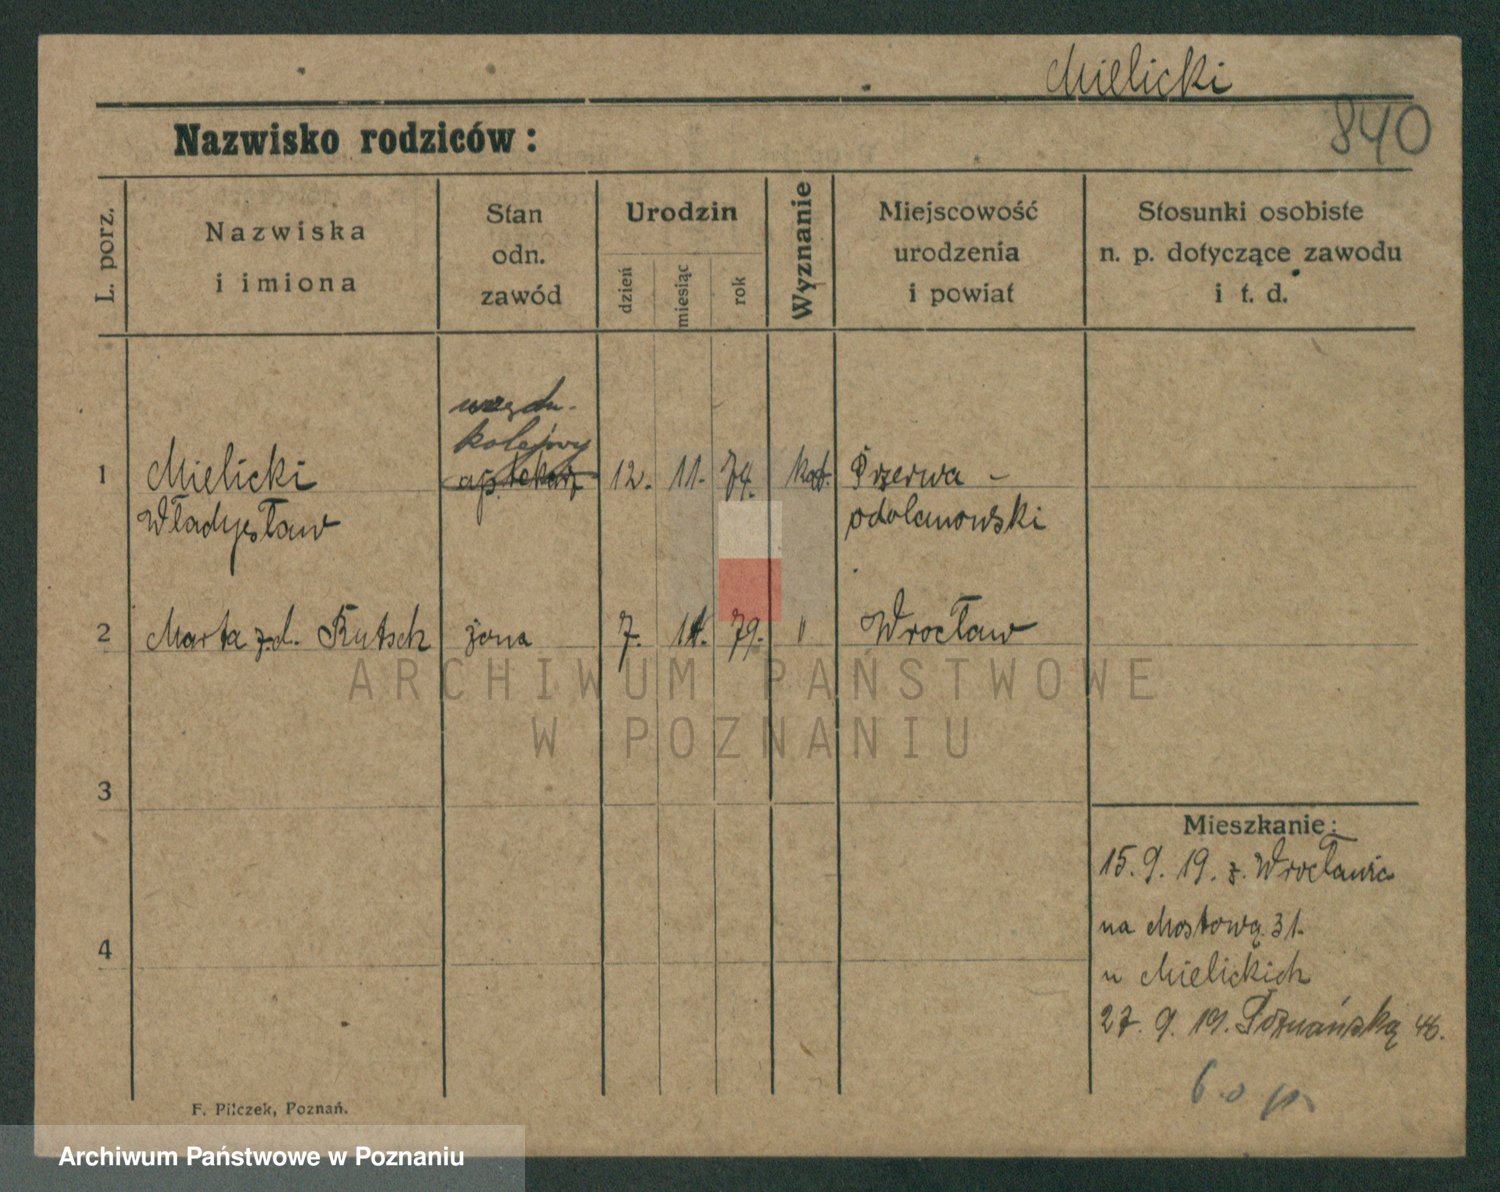 Mielicki
840
Nazwisko rodziców:
L. porz.
Nazwiska
i imiona
Stan
odn.
zawód
Urodzin
dzień
miesiąc
rok
Wyznanie
Miejscowość
urodzenia
i powiat
Stosunki osobiste
n. p. dotyczące zawodu
i t. d.
urzędn.
kolejowy
1 Mielicki aptekarz 12. 11. 74. kat. Przerwa -
Władysław odolanowski
2 Marta z d. Kutsch żona 7. 11. 79. " Wrocław
ARCHIWUM PAŃSTWOWE
W POZNANIU
3
Mieszkanie:
15. 9. 19. z Wrocławia
4
na Mostową 31.
u Mielickich
27. 9. 19. Poznańską 46.
F. Pilczek, Poznań.
Archiwum Państwowe w Poznaniu